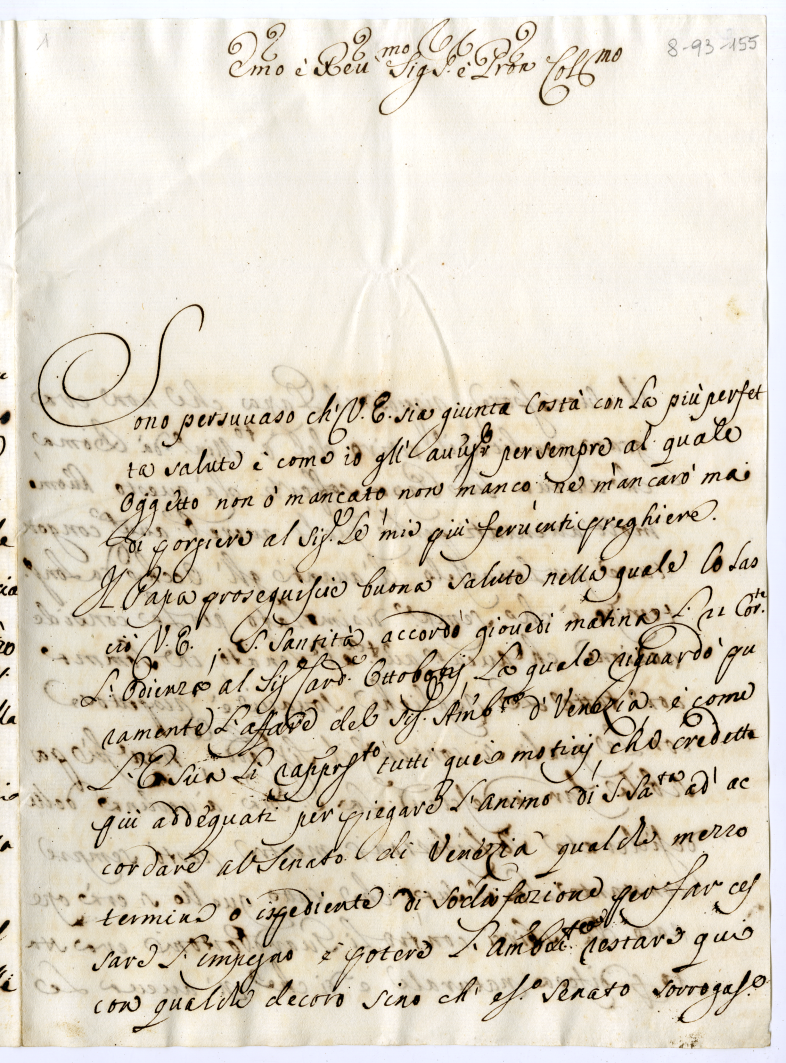 1
8-93-155
Emo è Reu.mo Sig.r è Pron Coll.mo
Sono persuvaso ch' V. E. sia giunta Costà con La più perfet
ta salute è come io gli' per sempre al quale
Oggetto non ò mancato non manco ne mancarò mai
di porgiere al Sig.r Le mie più feruenti preghiere.
Il Papa proseguiscie buona salute nella quale Lo Las
ciò V. E. S. Santità accordò giouedi matina L. 21 Cor.te
L' Odienza al Sig.r Card.e Ottobonj La quale riguardò pu
ramente L'affare del Sig. Amb.re di Venezia è come
L' E. Sua Li rapprs.to tutti quei motiuj, che credette
qui addequati per piegare L'animo di S. Sa.tà ad' ac
cordare al Senato di Venezia qualche mezzo
termine ò ispediente di sodisfazione per far ces
sare L'impegno è potere L' restare qui
con qualche decoro sino ch' ess.o Senato sorrogass.e